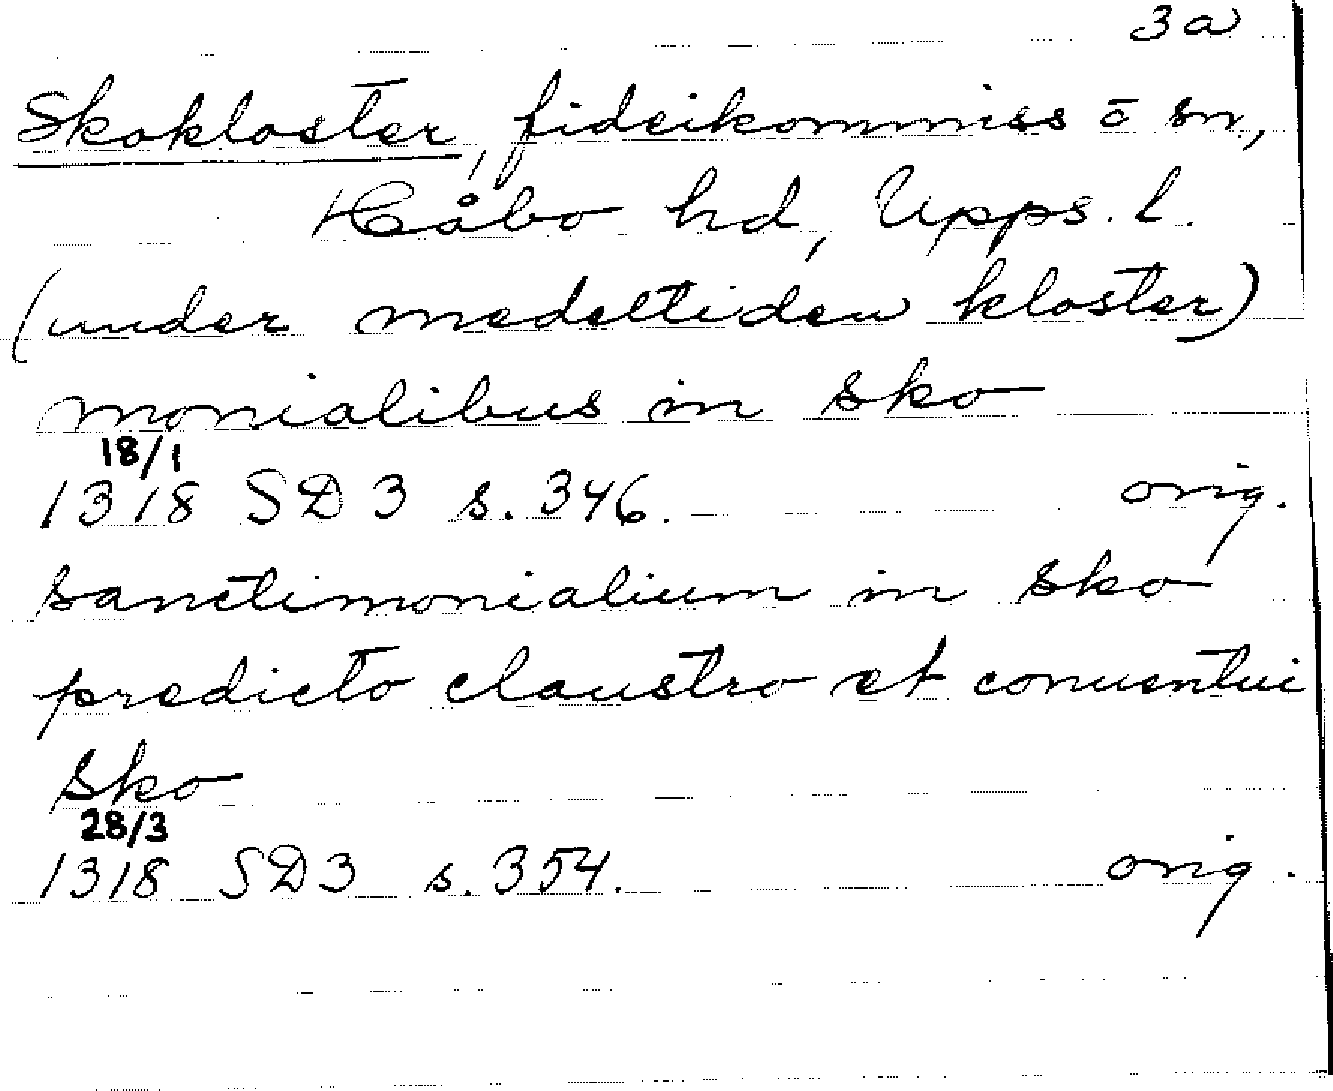 3a
Skokloster, fideikommiss ō sn,
Håbo hd, Upps. l.
(under medeltiden kloster)
monialibus in sko
18/1
1318 SD 3 s. 346. orig.
sanctimonialium in sko
predicto claustro et conuentui
sko
28/3
1318 SD 3 s. 354. orig.